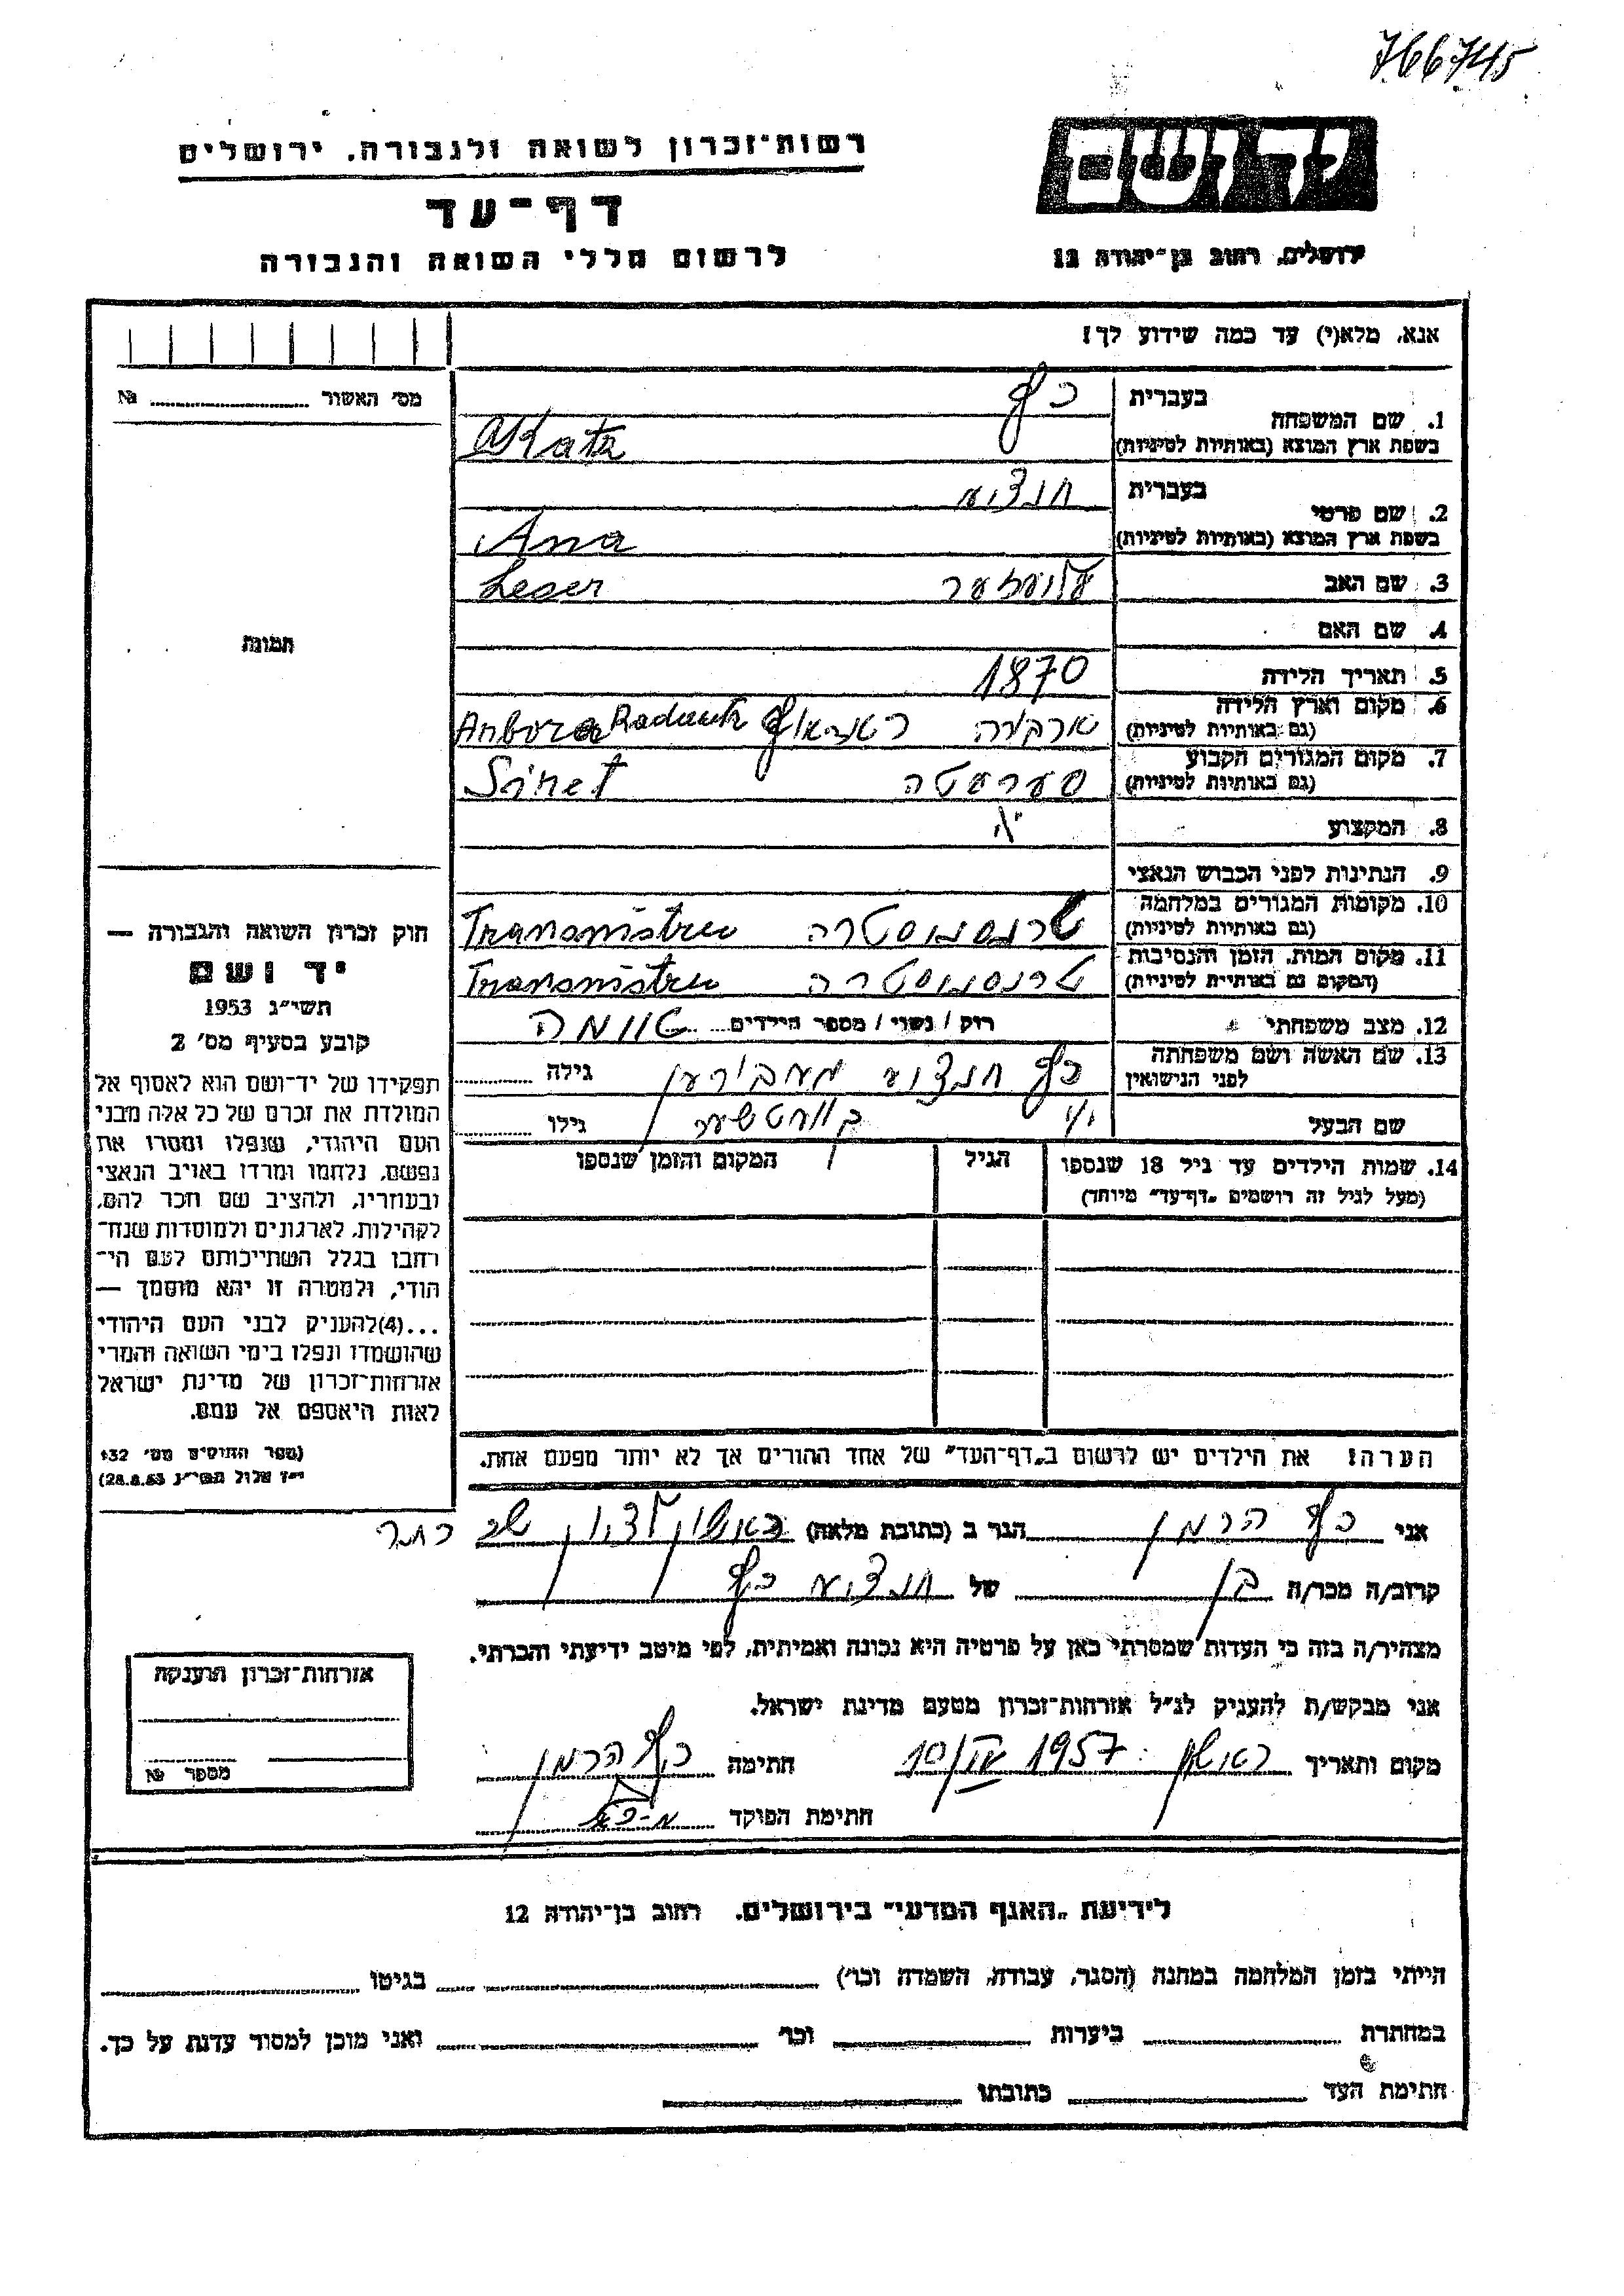 766745
יד ושם
רשות־זכרון לשואה ולגבורה, ירושלים
דף־עד
לרשום חללי השואה והגבורה
ירושלים, רחוב בן־יהודה 12
אנא, מלא(י) עד כמה שידוע לך!
מס' האשור № 
תמונה
1. שם המשפחה
בעברית כץ
בשפת ארץ המוצא (באותיות לטיניות) Katz
2. שם פרטי
בעברית
בשפת ארץ המוצא (באותיות לטיניות) Ana
3. שם האב Leser
4. שם האם
5. תאריך הלידה 1870
6. מקום וארץ הלידה
(גם באותיות לטיניות) Arbora Radautz
7. מקום המגורים הקבוע
(גם באותיות לטיניות) סערעטה Siret
8. המקצוע
9. הנתינות לפני הכבוש הנאצי
10. מקומות המגורים במלחמה
(גם באותיות לטיניות) טרנסניסטרה Transnistru
11. מקום המות, הזמן והנסיבות
(המקום גם באותיות לטיניות) טרנסניסטרה Transnistru
12. מצב משפחתי רוק / נשוי / מספר הילדים
13. שם האשה ושם משפחתה
לפני הנישואין כץ גילה
שם הבעל גילו
14. שמות הילדים עד גיל 18 שנספו הגיל המקום והזמן שנספו
(מעל לגיל זה רושמים „דף־עד" מיוחד)
הערה! את הילדים יש לרשום ב„דף־העד" של אחד ההורים אך לא יותר מפעם אחת.
חוק זכרון השואה והגבורה —
יד ושם
תשי"ג 1953
קובע בסעיף מס' 2
תפקידו של יד־ושם הוא לאסוף אל
המולדת את זכרם של כל אלה מבני
העם היהודי, שנפלו ומסרו את
נפשם, נלחמו ומרדו באויב הנאצי
ובעוזריו, ולהציב שם וזכר להם,
לקהילות, לארגונים ולמוסדות שנח־
רבו בגלל השתייכותם לעם הי־
הודי, ולמטרה זו יהא מוסמך —
...(4)להעניק לבני העם היהודי
שהושמדו ונפלו בימי השואה והמרי
אזרחות־זכרון של מדינת ישראל
לאות היאספם אל עמם.
(ספר החוקים מס' 132
י"ז אלול תשי"ג 28.8.53)
אני כץ הרמן הגר ב (כתובת מלאה) ראשון לציון
קרוב/ה מכר/ה בן של כץ
מצהיר/ה בזה כי העדות שמסרתי כאן על פרטיה היא נכונה ואמיתית, לפי מיטב ידיעתי והכרתי.
אני מבקש/ת להעניק לנ"ל אזרחות־זכרון מטעם מדינת ישראל.
מקום ותאריך ראשון 1957 חתימה כץ הרמן
חתימת הפוקד
אזרחות־זכרון הוענקה
מספר №
לידיעת „האגף המדעי" בירושלים, רחוב בן־יהודה 12
הייתי בזמן המלחמה במחנה (הסגר, עבודה, השמדה וכו') בגיטו
במחתרת ביערות וכו' ואני מוכן למסור עדות על כך.
חתימת העד כתובתו